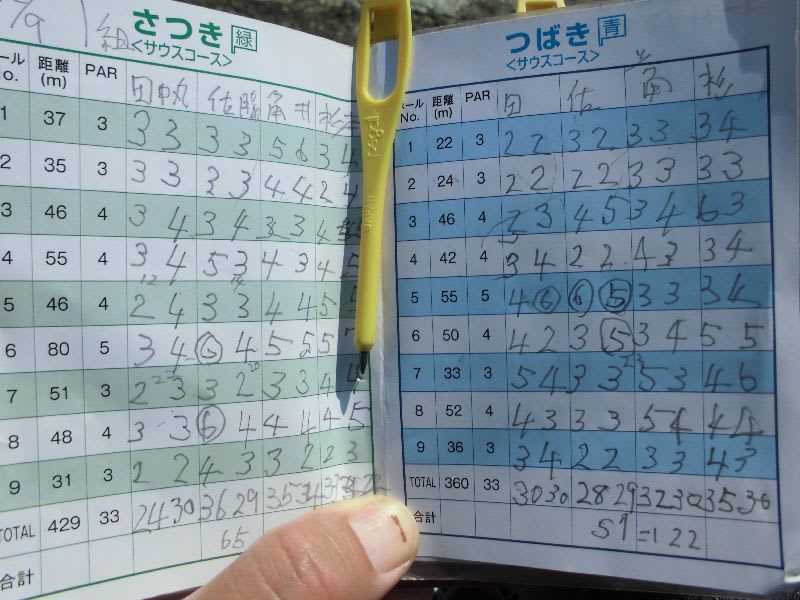 1組
さつき 緑
<サウスコース>
ール No. 距離 (m) PAR 田中丸 佐脇 角井
1 37 3 3 3 3 3 5 6 3 4
2 35 3 3 3 3 3 4 4 2 4
3 46 4 3 4 3 4 3 3 4
4 55 4 3 4 5 3 4 3 4 5
5 46 4 2 4 3 3 4 4 5
6 80 5 3 4 6 4 5 5 5
7 51 3 2 3 3 2 3 3 4 4
8 48 4 3 3 6 4 4 4 4 5
9 31 3 2 2 4 3 3 2 2 3
TOTAL 429 33 24 30 36 29 35
65
合計
つばき 青
<サウスコース>
ホール No. 距離 (m) PAR 田 佐 角 杉
1 22 3 2 2 3 2 3 3 3 4
2 24 3 2 2 2 2 3 3 3 3
3 46 4 3 3 4 5 3 4 6 3
4 42 4 3 4 2 2 4 3 3 4
5 55 5 4 6 6 5 3 3 3
6 50 4 4 2 3 5 3 4 5 5
7 33 3 5 4 3 3 5 3 4 6
8 52 4 4 3 3 3 5 4 4 4
9 36 3 3 4 2 2 3 3 4 3
TOTAL 360 33 30 30 28 29 32 30 35 36
合計 57=122